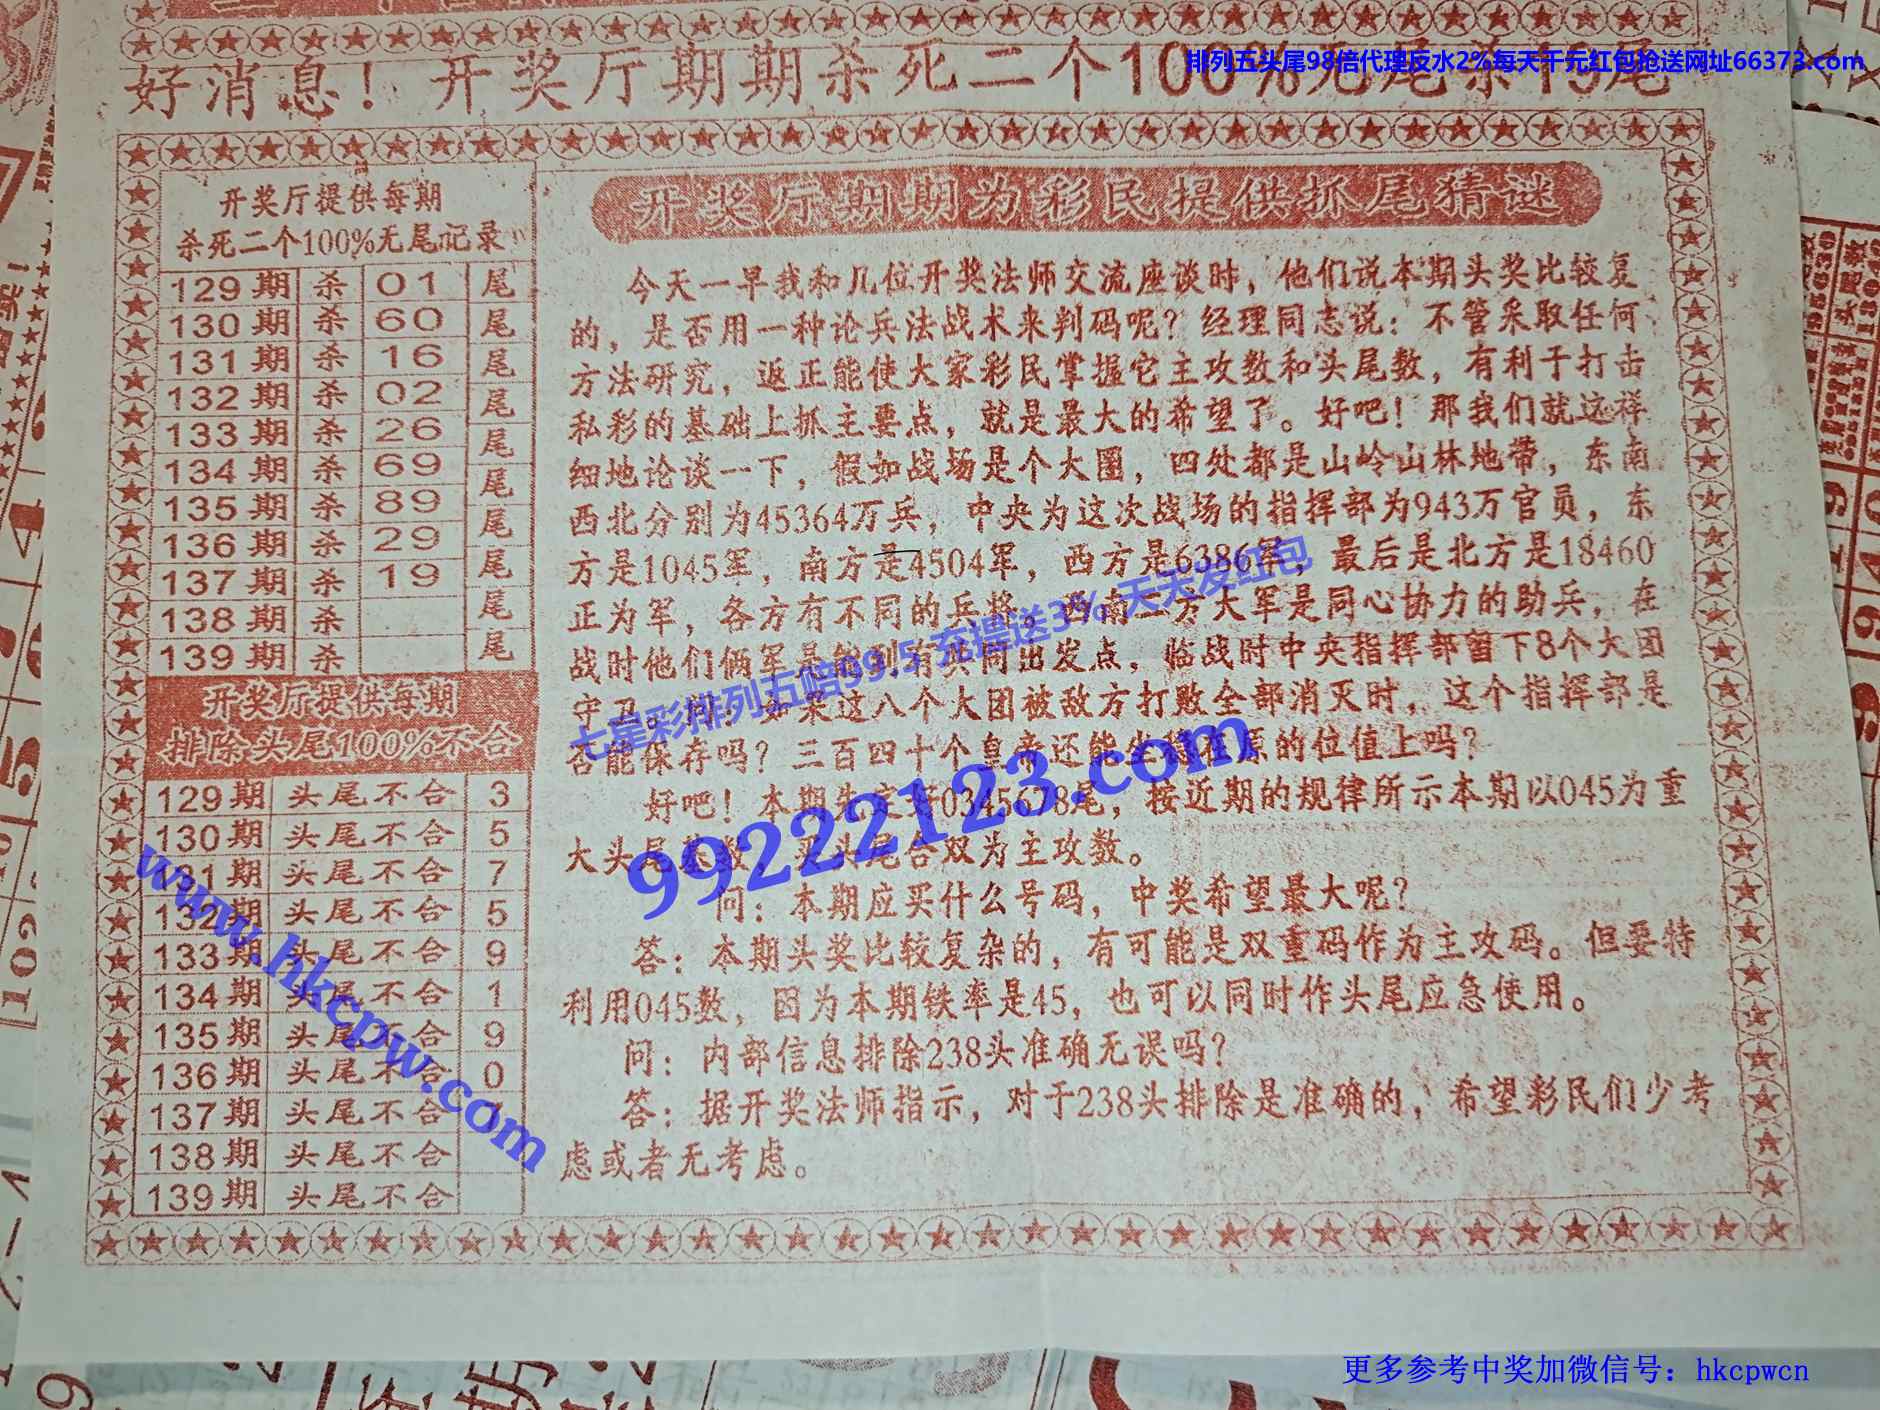 排列五头尾98倍代理反水2%每天千元红包抢送网址66373.com
好消息！开奖厅期期杀死二个100%无尾杀19尾
开奖厅提供每期
杀死二个100%无尾记录
129期 杀 01 尾
130期 杀 60 尾
131期 杀 16 尾
132期 杀 02 尾
133期 杀 26 尾
134期 杀 69 尾
135期 杀 89 尾
136期 杀 29 尾
137期 杀 19 尾
138期 杀 尾
139期 杀
开奖厅提供每期
排除头尾100%不合
129期 头尾不合 3
130期 头尾不合 5
131期 头尾不合 7
132期 头尾不合 5
133期 头尾不合 9
134期 头尾不合 1
135期 头尾不合 9
136期 头尾不合 0
137期 头尾不合
138期 头尾不合
139期 头尾不合
开奖厅期期为彩民提供抓尾猜谜
今天一早我和几位开奖法师交流座谈时，他们说本期头奖比较复
的，是否用一种论兵法战术来判码呢？经理同志说：不管采取任何
方法研究，返正能使大家彩民掌握它主攻数和头尾数，有利于打击
私彩的基础上抓主要点，就是最大的希望了。好吧！那我们就这样
细地论谈一下，假如战场是个大圈，四处都是山岭山林地带，东南
西北分别为45364万兵，中央为这次战场的指挥部为943万官员，东
方是1045军，南方是4504军，西方是6386军，最后是北方是18460
正为军，各方有不同的兵将。西南二方大军是同心协力的助兵，在
战时他们俩军是能到有共同出发点，临战时中央指挥部留下8个大团
守卫。问：如果这八个大团被敌方打败全部消灭时，这个指挥部是
否能保存吗？三百四十个皇帝还能坐稳在原的位值上吗？
好吧！本期先主奇0345678尾，按近期的规律所示本期以045为重
大头尾基数，买头尾合双为主攻数。
问：本期应买什么号码，中奖希望最大呢？
答：本期头奖比较复杂的，有可能是双重码作为主攻码。但要特
利用045数，因为本期铁率是45，也可以同时作头尾应急使用。
问：内部信息排除238头准确无误吗？
答：据开奖法师指示，对于238头排除是准确的，希望彩民们少考
虑或者无考虑。
七星彩排列五赔99.5 充提送3% 天天发红包
99222123.com
www.hkcpw.com
更多参考中奖加微信号：hkcpwcn